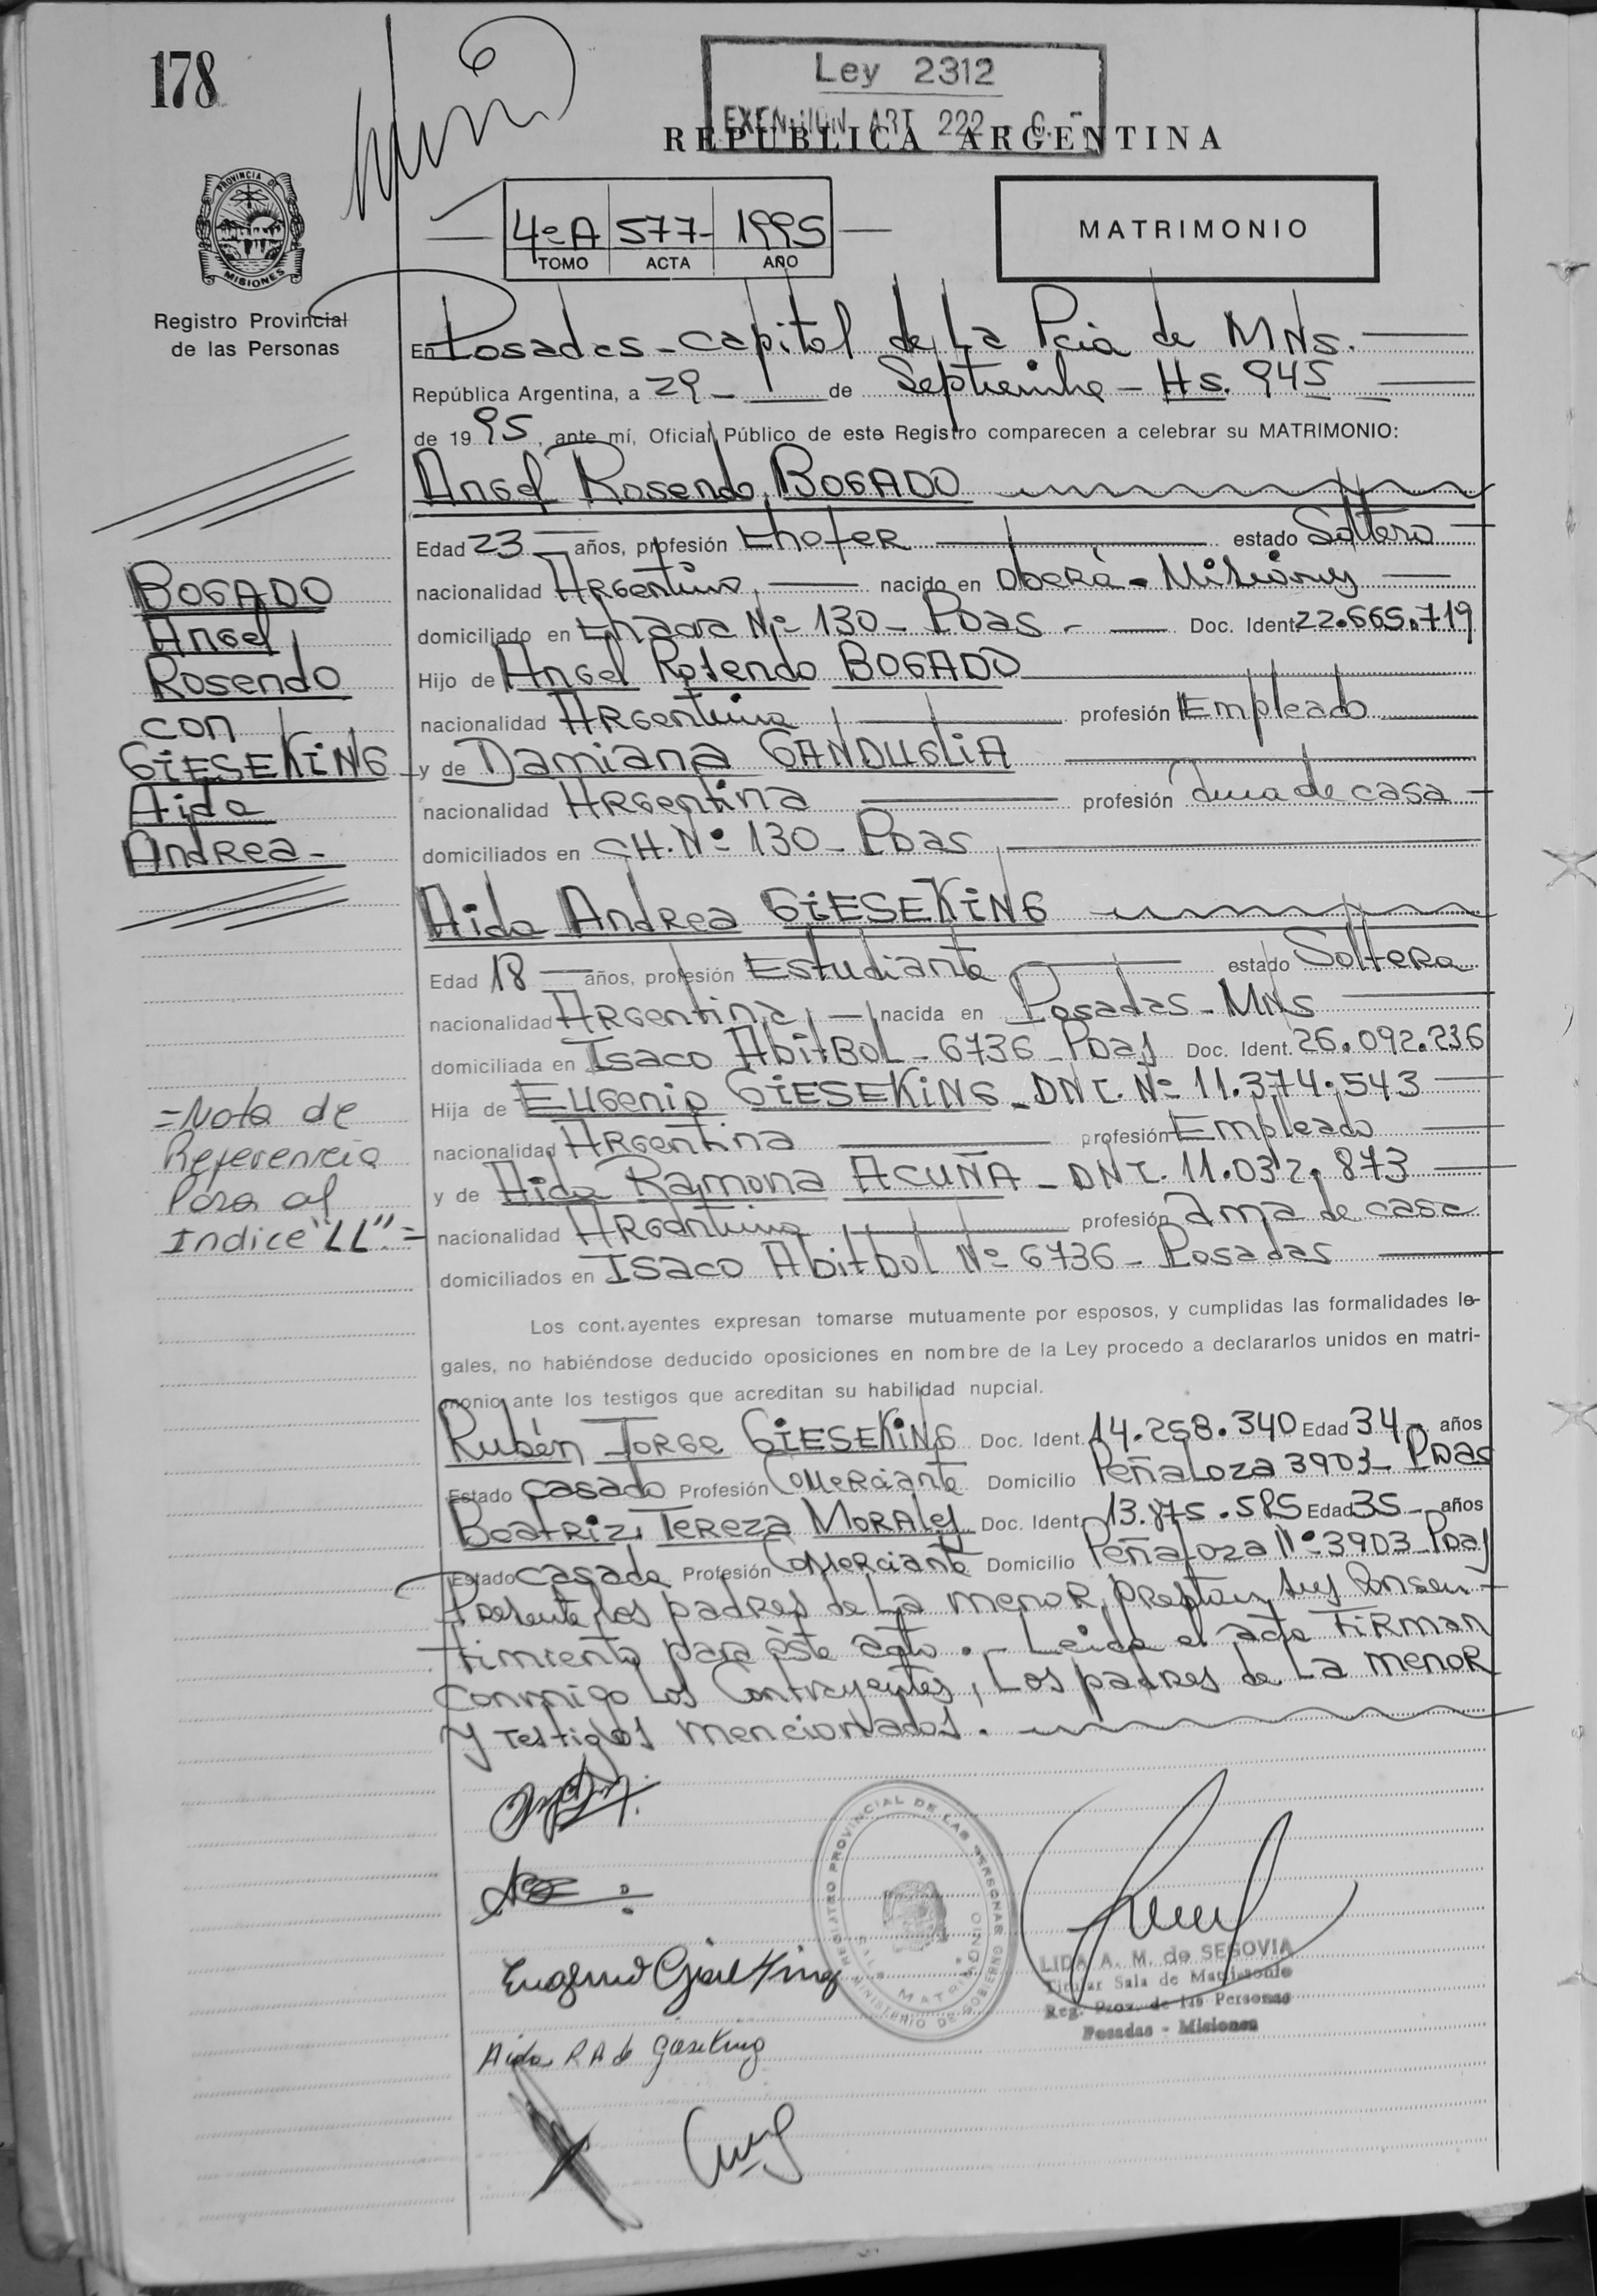 178
Ley 2312
EXENCION ART 222 - C.
REPUBLICA ARGENTINA
PROVINCIA DE MISIONES
Registro Provincial
de las Personas
4º A 577- 1995
TOMO ACTA AÑO
MATRIMONIO
En Posadas - Capital de La Pcia de MNs.
República Argentina, a 29 - de Septiembre - Hs. 945
de 1995, ante mí, Oficial Público de este Registro comparecen a celebrar su MATRIMONIO:
Angel Rosendo BOGADO
Edad 23 años, profesión Chofer estado Soltero
nacionalidad Argentino, nacido en Oberá - Misiones
domiciliado en Chacra Nº 130 - Pdas - Doc. Ident. 22.665.719
Hijo de Angel Rosendo BOGADO
nacionalidad Argentino profesión Empleado
y de Damiana GANDUGLIA
nacionalidad Argentina profesión ama de casa
domiciliados en CH. Nº 130 - Pdas
BOGADO
Angel
Rosendo
con
GIESEKING
Aida
Andrea -
Aida Andrea GIESEKING
Edad 18 años, profesión Estudiante estado Soltera
nacionalidad Argentina, nacida en Posadas - MNs
domiciliada en Isaco Abitbol - 6736 - Pdas Doc. Ident. 26.092.236
Hija de Eugenio GIESEKING - DNI. Nº 11.374.543
nacionalidad Argentina profesión Empleado
y de Aida Ramona ACUÑA - DNI. 11.032.873
nacionalidad Argentina profesión ama de casa
domiciliados en Isaco Abitbol Nº 6736 - Posadas
= Nota de
Referencia
Pasa al
Indice "LL" =
Los cont.ayentes expresan tomarse mutuamente por esposos, y cumplidas las formalidades le-
gales, no habiéndose deducido oposiciones en nombre de la Ley procedo a declararlos unidos en matri-
monio ante los testigos que acreditan su habilidad nupcial.
Rubén Jorge GIESEKING Doc. Ident. 14.258.340 Edad 34 - años
Estado Casado Profesión Comerciante Domicilio Peñaloza 3903 - Pdas
Beatriz Tereza Morales Doc. Ident. 13.875.585 Edad 35 - años
Estado Casada Profesión Comerciante Domicilio Peñaloza Nº 3903 - Pdas
Presente los padres de La menor, prestan sus Consen-
timiento para éste acto. - Leida el acta Firman
conmigo Los Contrayentes, Los padres de La menor
y testigos mencionados.
REGISTRO PROVINCIAL DE LAS PERSONAS
MINISTERIO DE GOBIERNO
SALA MATRIMONIO
Eugenio Gieseking
Aida R A de Gieseking
LIDA A. M. de SEGOVIA
Titular Sala de Matrimonio
Reg. Prov. de las Personas
Posadas - Misiones